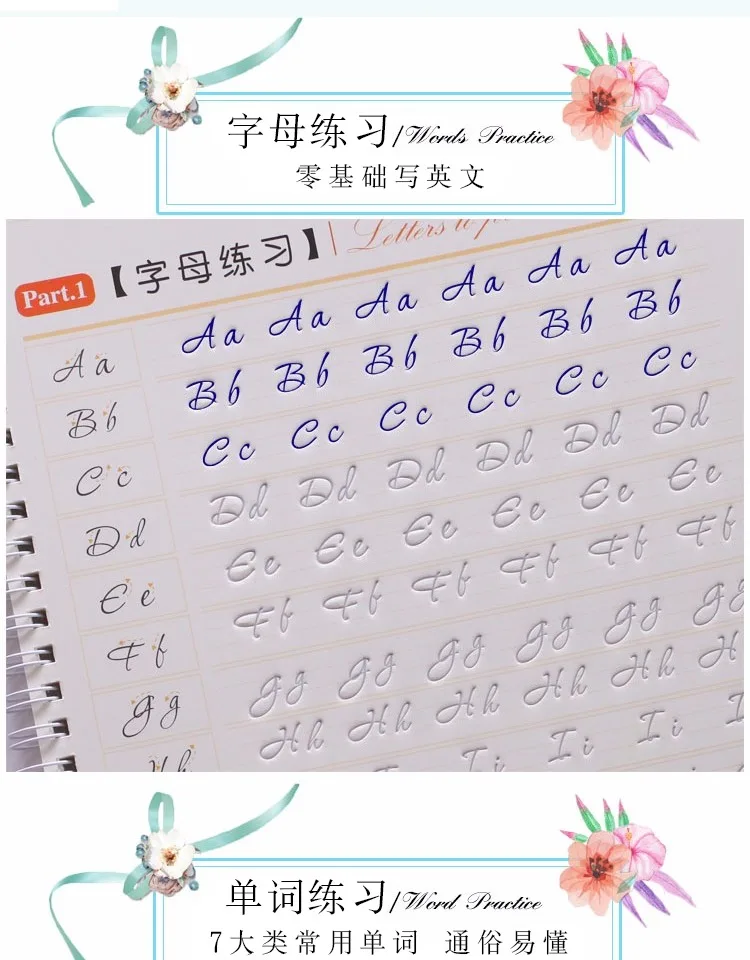 字母练习/Words Practice
零基础写英文
Part.1 【字母练习】 Letters to
A a Aa Aa Aa Aa Aa Aa
B b Bb Bb Bb Bb Bb Bb
C c Cc Cc Cc Cc Cc Cc
D d Dd Dd Dd Dd Dd Dd
E e Ee Ee Ee Ee Ee Ee
F f Ff Ff Ff Ff Ff Ff
G g Gg Gg Gg Gg Gg Gg
H h Hh Hh Hh Hh Hh H
I i I i I
单词练习/Word Practice
7大类常用单词 通俗易懂